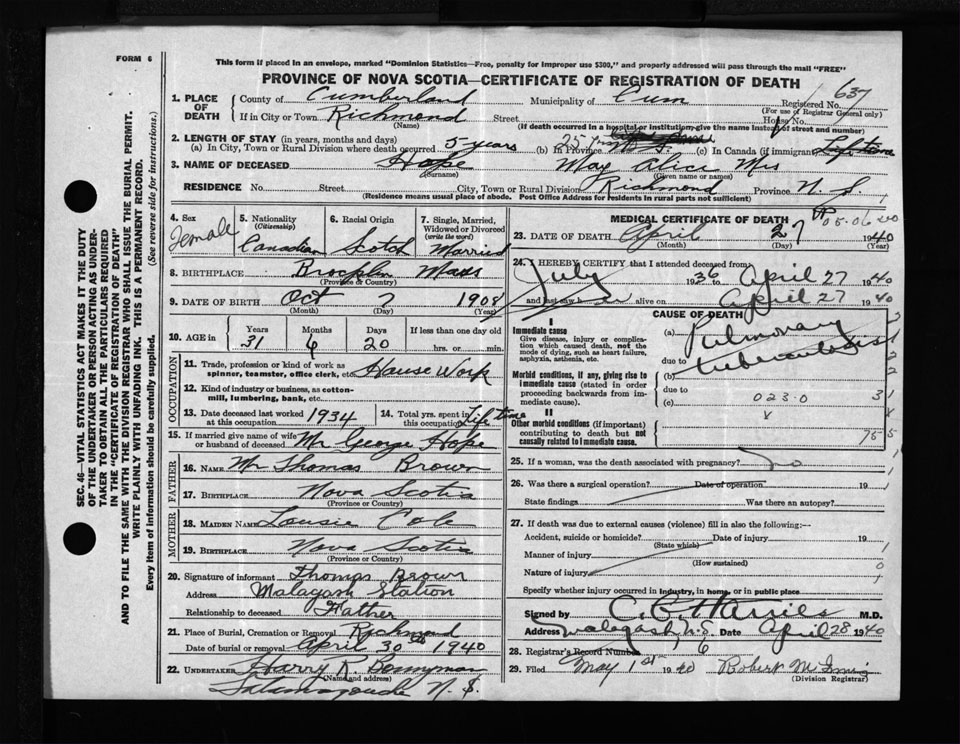 FORM 6
This form if placed in an envelope, marked "Dominion Statistics—Free, penalty for improper use $300," and properly addressed will pass through the mail "FREE"
PROVINCE OF NOVA SCOTIA—CERTIFICATE OF REGISTRATION OF DEATH
SEC. 46—VITAL STATISTICS ACT MAKES IT THE DUTY
OF THE UNDERTAKER OR PERSON ACTING AS UNDER-
TAKER TO OBTAIN ALL THE PARTICULARS REQUIRED
IN THE "CERTIFICATE OF REGISTRATION OF DEATH"
AND TO FILE THE SAME WITH THE DIVISION REGISTRAR WHO SHALL ISSUE THE BURIAL PERMIT.
WRITE PLAINLY WITH UNFADING INK. THIS IS A PERMANENT RECORD.
Every item of information should be carefully supplied. (See reverse side for instructions.)
1. PLACE OF DEATH County of Cumberland Municipality of Cum Registered No. 637
(For use of Registrar General only)
If in City or Town Richmond Street House No.
(Name) (If death occurred in a hospital or institution, give the name instead of street and number)
2. LENGTH OF STAY (in years, months and days)
(a) In City, Town or Rural Division where death occurred 5 years (b) In Province 25 (c) In Canada (if immigrant) Life time
3. NAME OF DECEASED Hope May Alice Mrs
(Surname) (Given name or names)
RESIDENCE No. Street City, Town or Rural Division Richmond Province N. S
(Residence means usual place of abode. Post Office Address for residents in rural parts not sufficient)
4. Sex Female
5. Nationality (Citizenship) Canadian
6. Racial Origin Scotch
7. Single, Married, Widowed or Divorced (write the word) Married
8. BIRTHPLACE Mass
(Province or Country)
9. DATE OF BIRTH Oct 7 1908
(Month) (Day) (Year)
10. AGE in Years Months Days If less than one day old
31 6 20 hrs. or min.
OCCUPATION
11. Trade, profession or kind of work as spinner, teamster, office clerk, etc. House Work
12. Kind of industry or business, as cotton-mill, lumbering, bank, etc.
13. Date deceased last worked at this occupation 1934
14. Total yrs. spent in this occupation Life time
15. If married give name of wife or husband of deceased Mr George Hope
FATHER
16. NAME Mr Thomas Brown
17. BIRTHPLACE Nova Scotia
(Province or Country)
MOTHER
18. MAIDEN NAME Lousie Cole
19. BIRTHPLACE Nova Scotia
(Province or Country)
20. Signature of informant Thomas Brown
Address Malagash Station
Relationship to deceased Father
21. Place of Burial, Cremation or Removal Richmond
Date of burial or removal April 30th 1940
22. UNDERTAKER Harry K. Bonnyman
(Name and address)
Tatamagouche N. S.
MEDICAL CERTIFICATE OF DEATH
05-06
23. DATE OF DEATH April 27 1940
(Month) (Day) (Year)
24. I HEREBY CERTIFY that I attended deceased from
July 1936 to April 27 1940
and last saw her alive on April 27 1940
CAUSE OF DEATH
I
Immediate cause
Give disease, injury or complication which caused death, not the mode of dying, such as heart failure, asphyxia, asthenia, etc.
(a) Pulmonary
due to tuberculosis
Morbid conditions, if any, giving rise to immediate cause (stated in order proceeding backwards from immediate cause).
(b)
due to
(c) 023.0 31
II
Other morbid conditions (important) contributing to death but not causally related to immediate cause.
25. If a woman, was the death associated with pregnancy? No
26. Was there a surgical operation? Date of operation 19
State findings Was there an autopsy?
27. If death was due to external causes (violence) fill in also the following:—
Accident, suicide or homicide? Date of injury 19
(State which)
Manner of injury
(How sustained)
Nature of injury
Specify whether injury occurred in industry, in home, or in public place
Signed by M.D.
Address Malagash N.S. Date April 28 1940
28. Registrar's Record Number 6
29. Filed May 1st 1940 Robert
(Division Registrar)